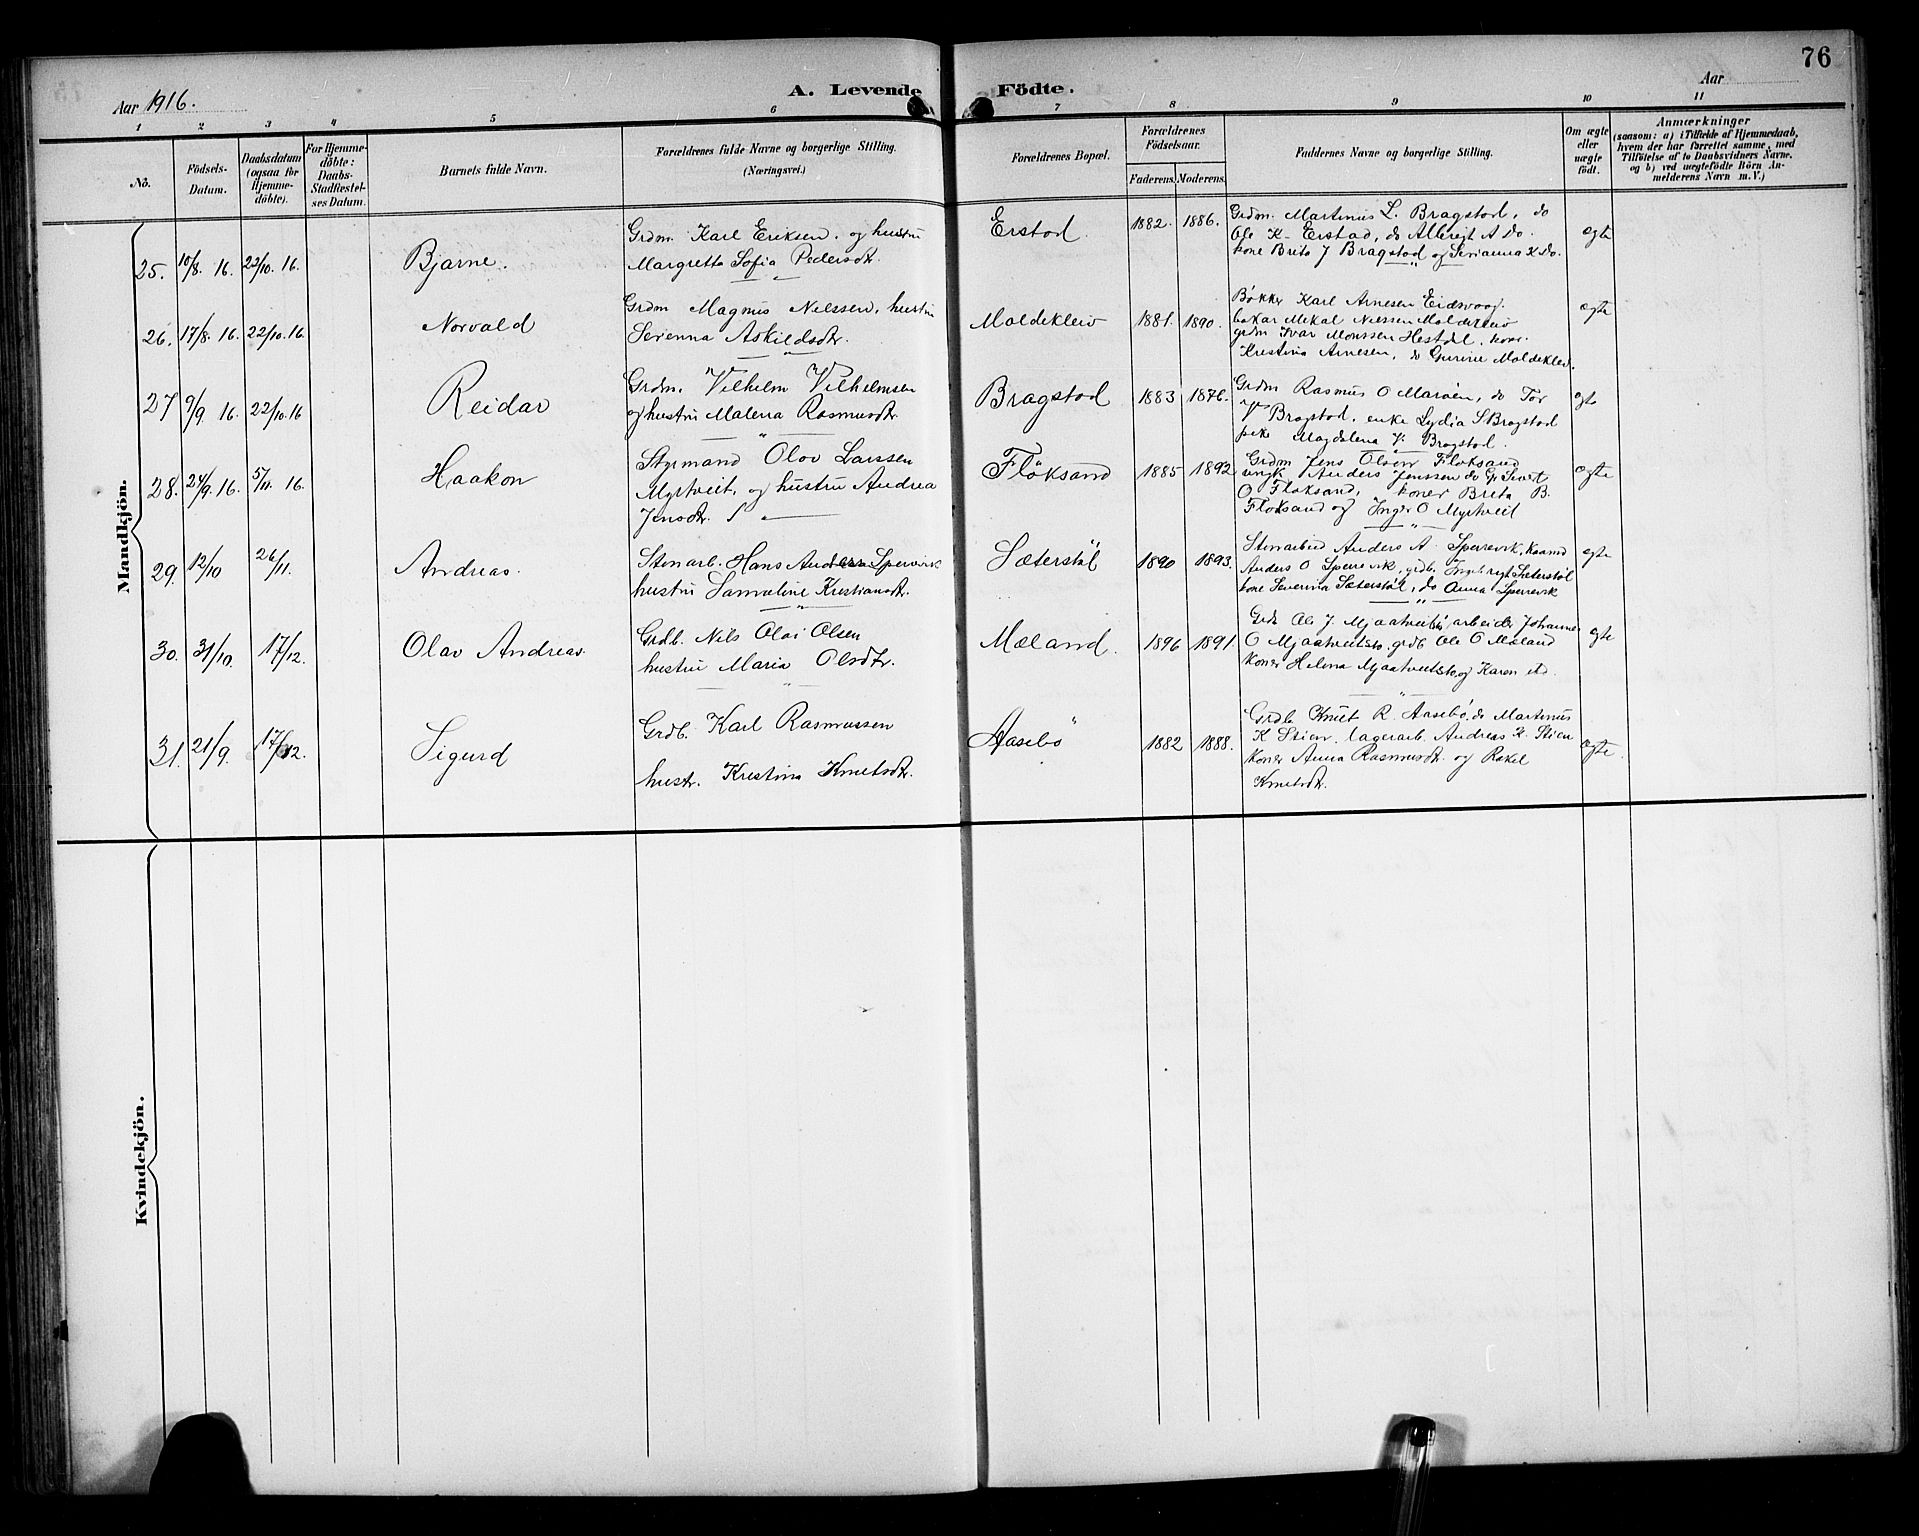 76
Aar 1916.
A. Levende Födte.
Aar
1 2 3 4 5 6 7 8 9 10 11
No.
Födsels-
Datum.
Daabsdatum
(ogsaa for
Hjemme-
döbte).
For Hjemme-
döbte:
Daabs-
Stadfæstel-
ses Datum.
Barnets fulde Navn.
Forældrenes fulde Navne og borgerlige Stilling.
(Næringsvei.)
Forældrenes Bopæl.
Forældrenes
Födselsaar.
Faderens. Moderens.
Faddernes Navne og borgerlige Stilling.
Om ægte
eller
uægte
födt.
Anmærkninger
(saasom: a) i Tilfælde af Hjemmedaab,
hvem der har forrettet samme, med
Tilföielse af to Daabsvidners Navne.
og b) ved uægtefödte Börn An-
melderens Navn m. V.)
Mandkjön.
25. 10/8. 16. 22/10. 16. Bjarne.
Grdm. Karl Eriksen. og hustru
Margretta Sofia Pedersdtr.
Erstad. 1882. 1886.
Grdm. Martinus L. Bragstad, do
Ole K. Erstad, do Albregt A Do.
kone Brita J Bragstad og Serianna K Do.
ægte
26. 17/8. 16. 22/10. 16 Norvald
Grdm Magnus Nilssen, hustru
Serienna Askildsdtr.
Moldekleiv 1881. 1890.
Bøkker Karl Arnesen Eidsvaag
bakar Mekal Nilssen Moldekleiv
grdm Ivar Monssen Hestdal. koner
Kristina Arnesen, do Gurine Moldekleiv.
ægte
27 9/9. 16. 22/10. 16 Reidar
Grdm. Vilhelm Vilhelmsen
og hustru Malena Rasmusdtr.
Bragstad 1883 1876.
Grdm Rasmus O Marøen, do Tør
V Bragstad, enke Lydia S Bragstad
pike Magdalena V. Bragstad.
ægte
28. 24/9. 16. 5/11. 16 Haakon
Styrmand Olav Larssen
Myrtveit, og hustru Andrea
Jensdtr.
Fløksand 1885 1892
Grdm Jens Olsen Fløksand
ungk Anders Jenssen do Sivert
O Fløksand, koner Brita B.
Fløksand og Inger O Myrtveit
ægte
29. 12/10 26/11. Andreas.
Stenarb. Hans Andersen Sperrevik
hustru Samueline Kristiansdtr.
Sæterstøl 1890 1893.
Stenarbeid Anders A. Sperrevik,
Anders O Sperrevik, grdb. Ingebregt Sæterstøl
kone Severina Sæterstøl, do Anna Sperrevik
ægte
30. 31/10. 17/12. Olav Andreas.
Grdb. Nils Olai Olsen
hustru Maria Olsdtr.
Mæland. 1896 1891.
Grdb Ole J. Mjaatveitstø, arbeider Johannes
O Mjaatveitstø, grdb Ole O Mæland
Koner Helena Mjaatveitstø og Karen
ægte
31. 21/9. 17/12. Sigurd
Grdb. Karl Rasmussen
hustr. Kristina Knutsdtr.
Aasebø 1882 1888.
Grdb Knut R. Aasebø, do Martinus
K Stien. lagerarb. Andreas K. Stien
koner Anna Rasmusdtr. og Rakel
Knutsdtr.
ægte.
Kvindekjön.